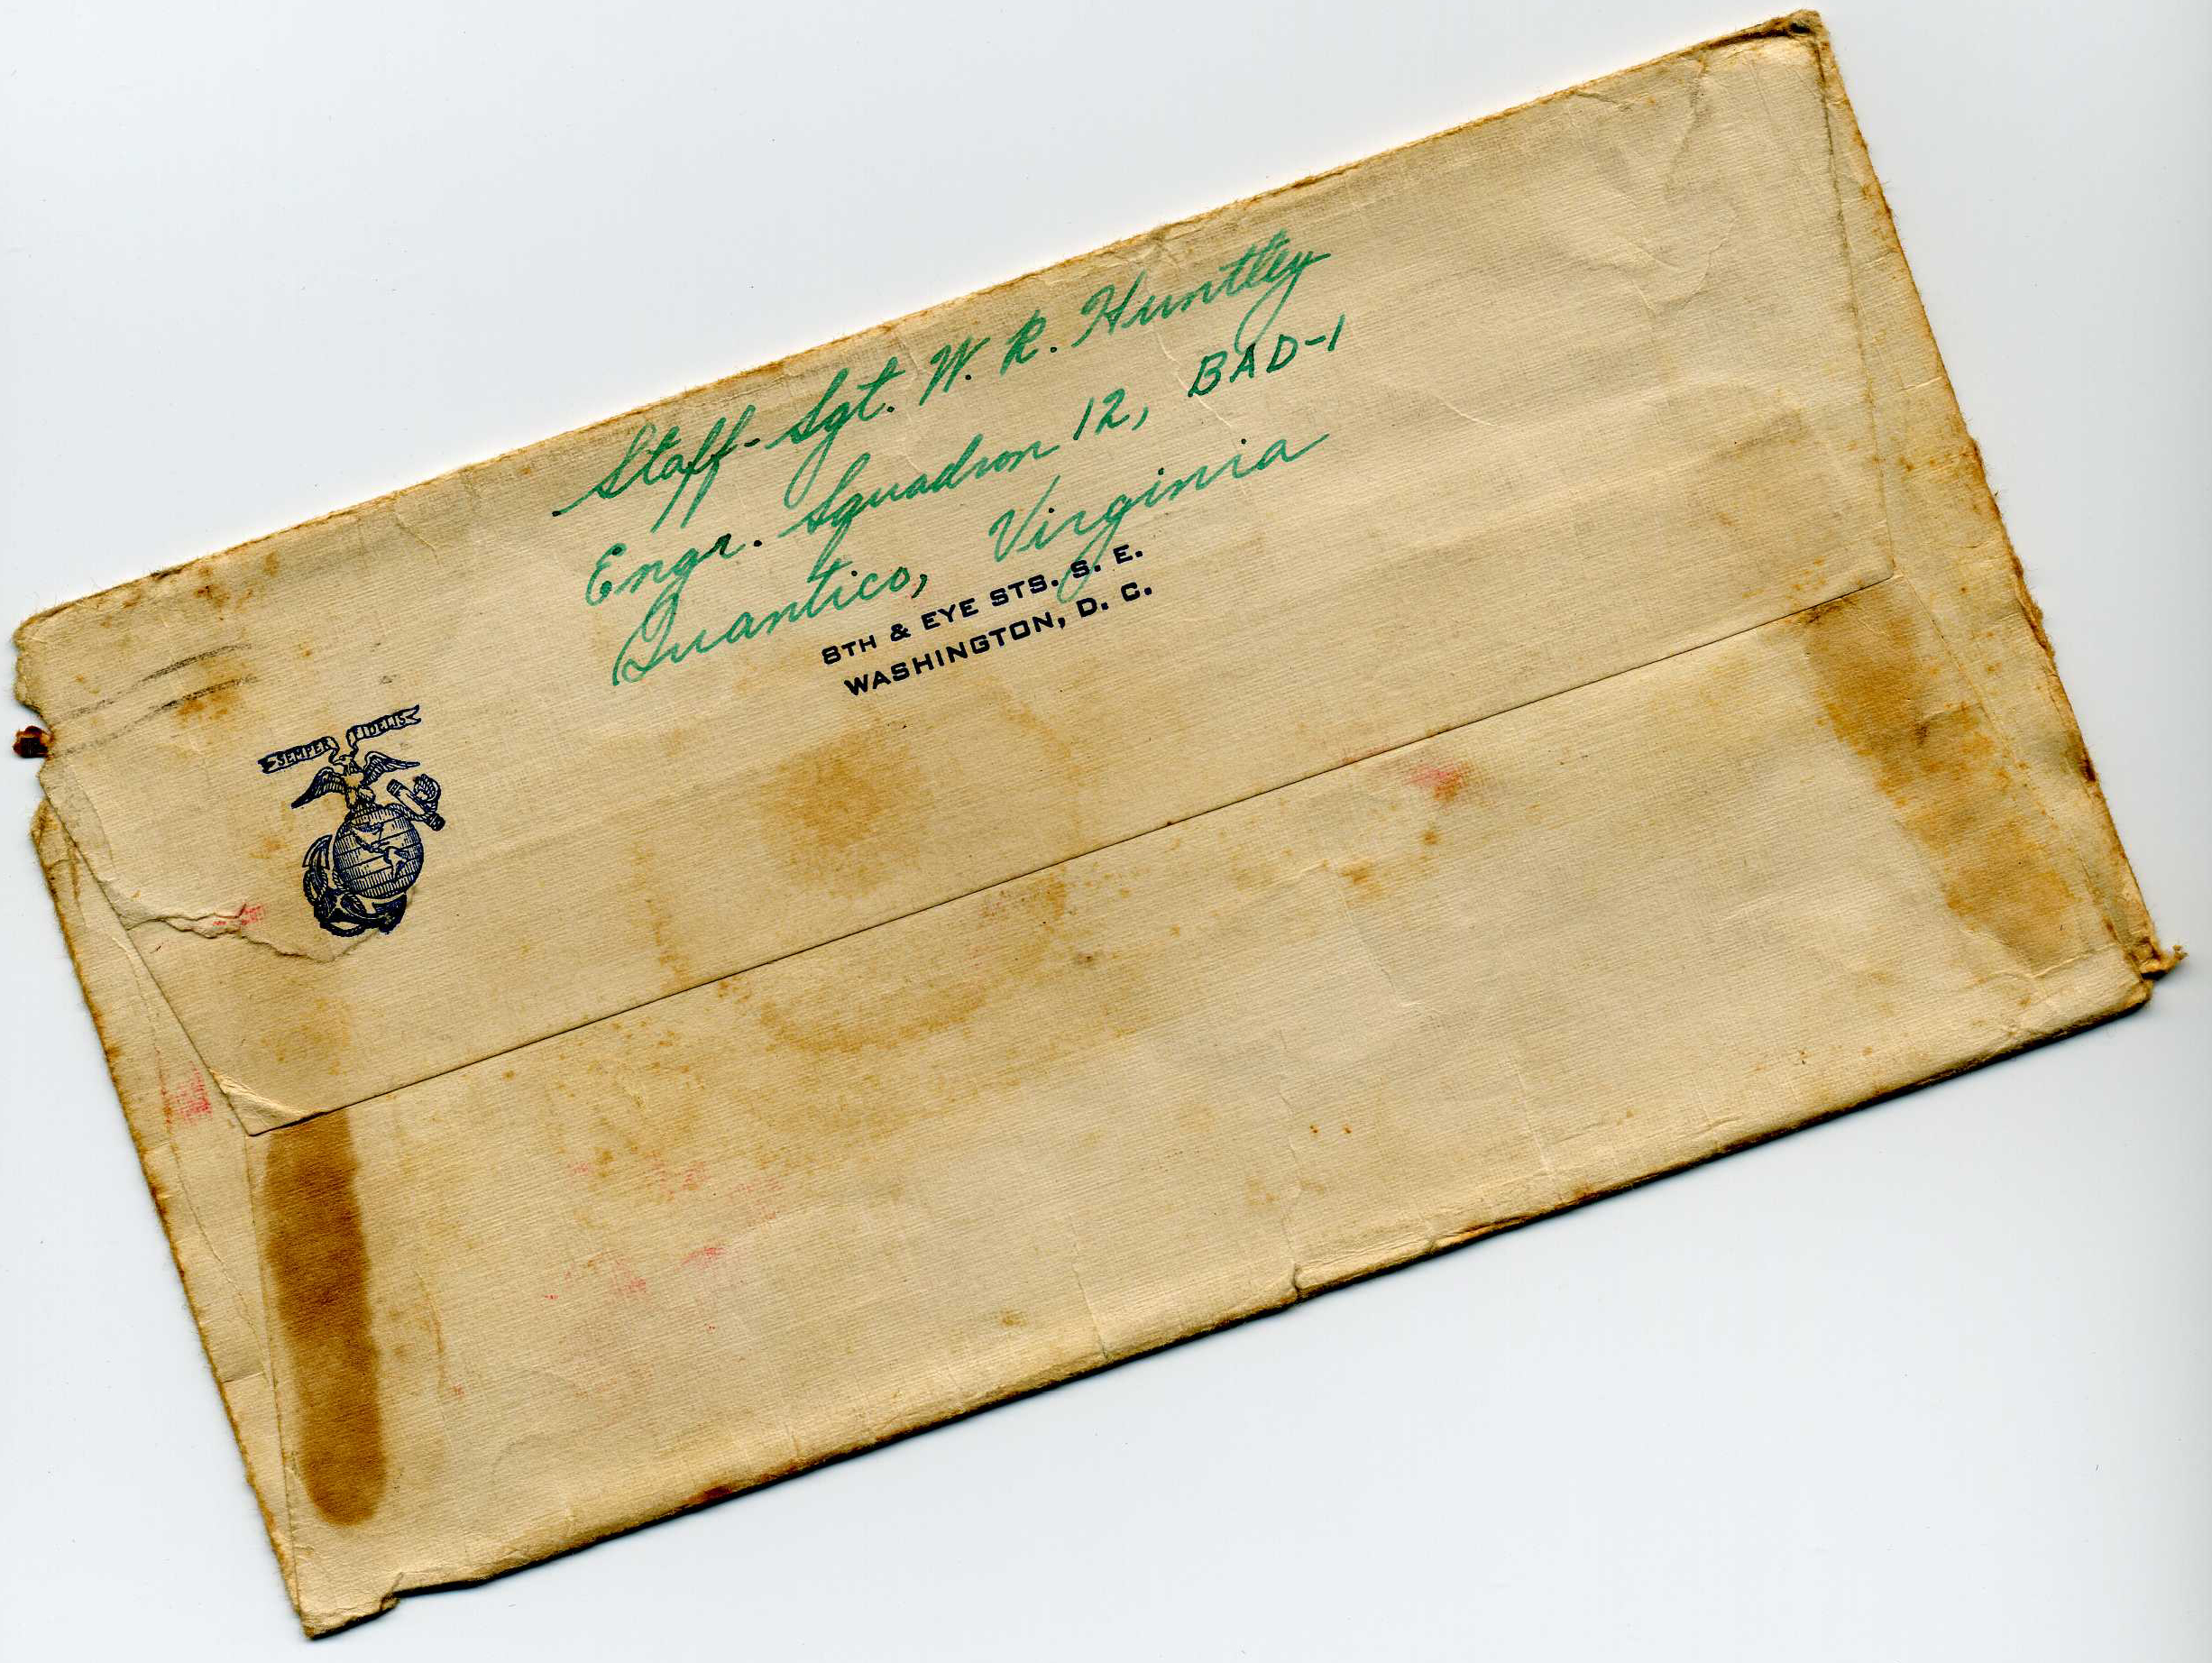 Staff-Sgt. W. R. Huntley
Engr. Squadron 12, BAD-1
Quantico, Virginia
8TH & EYE STS. S. E.
WASHINGTON, D. C.
SEMPER FIDELIS